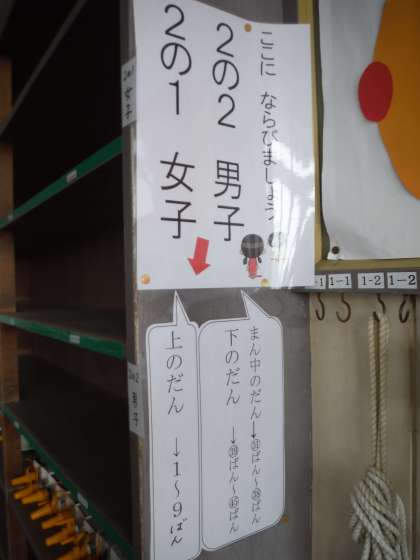 ここに ならびましょう
2の2 男子
2の1 女子
まん中のだん→㉛ばん〜㊳ばん
下のだん →㊴ばん〜㊺ばん
上のだん →1〜9ばん
2の1 女子
2の2 男子
-1
1-1
1-2
1-2